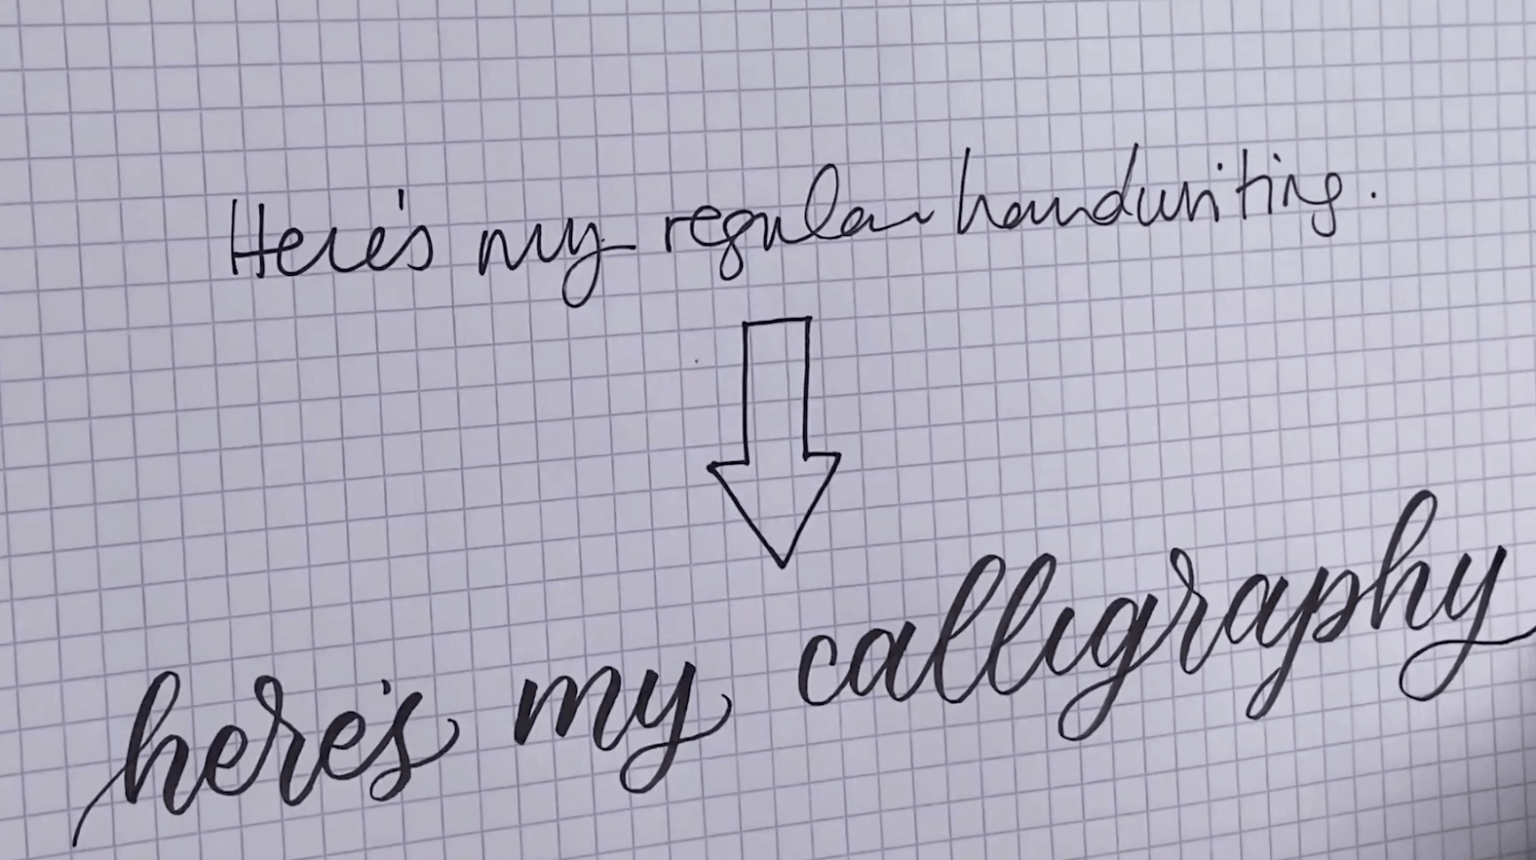 Here's my regular handwriting.
here's my calligraphy